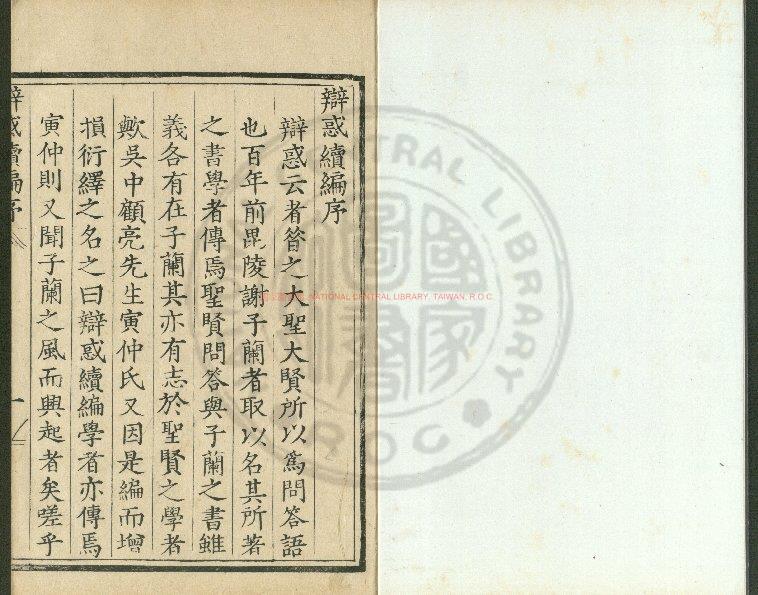 辯惑續編序
辯惑云者昝之大聖大賢所以爲問答語
也百年前毘陵謝子蘭者取以名其所著
之書學者傳焉聖賢問答與子蘭之書雖
義各有在子蘭其亦有志於聖賢之學者
歟吳中顧亮先生寅仲氏又因是編而增
損衍繹之名之曰辯惑續編學者亦傳焉
寅仲則又聞子蘭之風而興起者矣嗟乎
辯惑續編序
一
國立國家圖書館 NATIONAL CENTRAL LIBRARY, TAIWAN, R.O.C.
CENTRAL LIBRARY
ROC
國家圖書